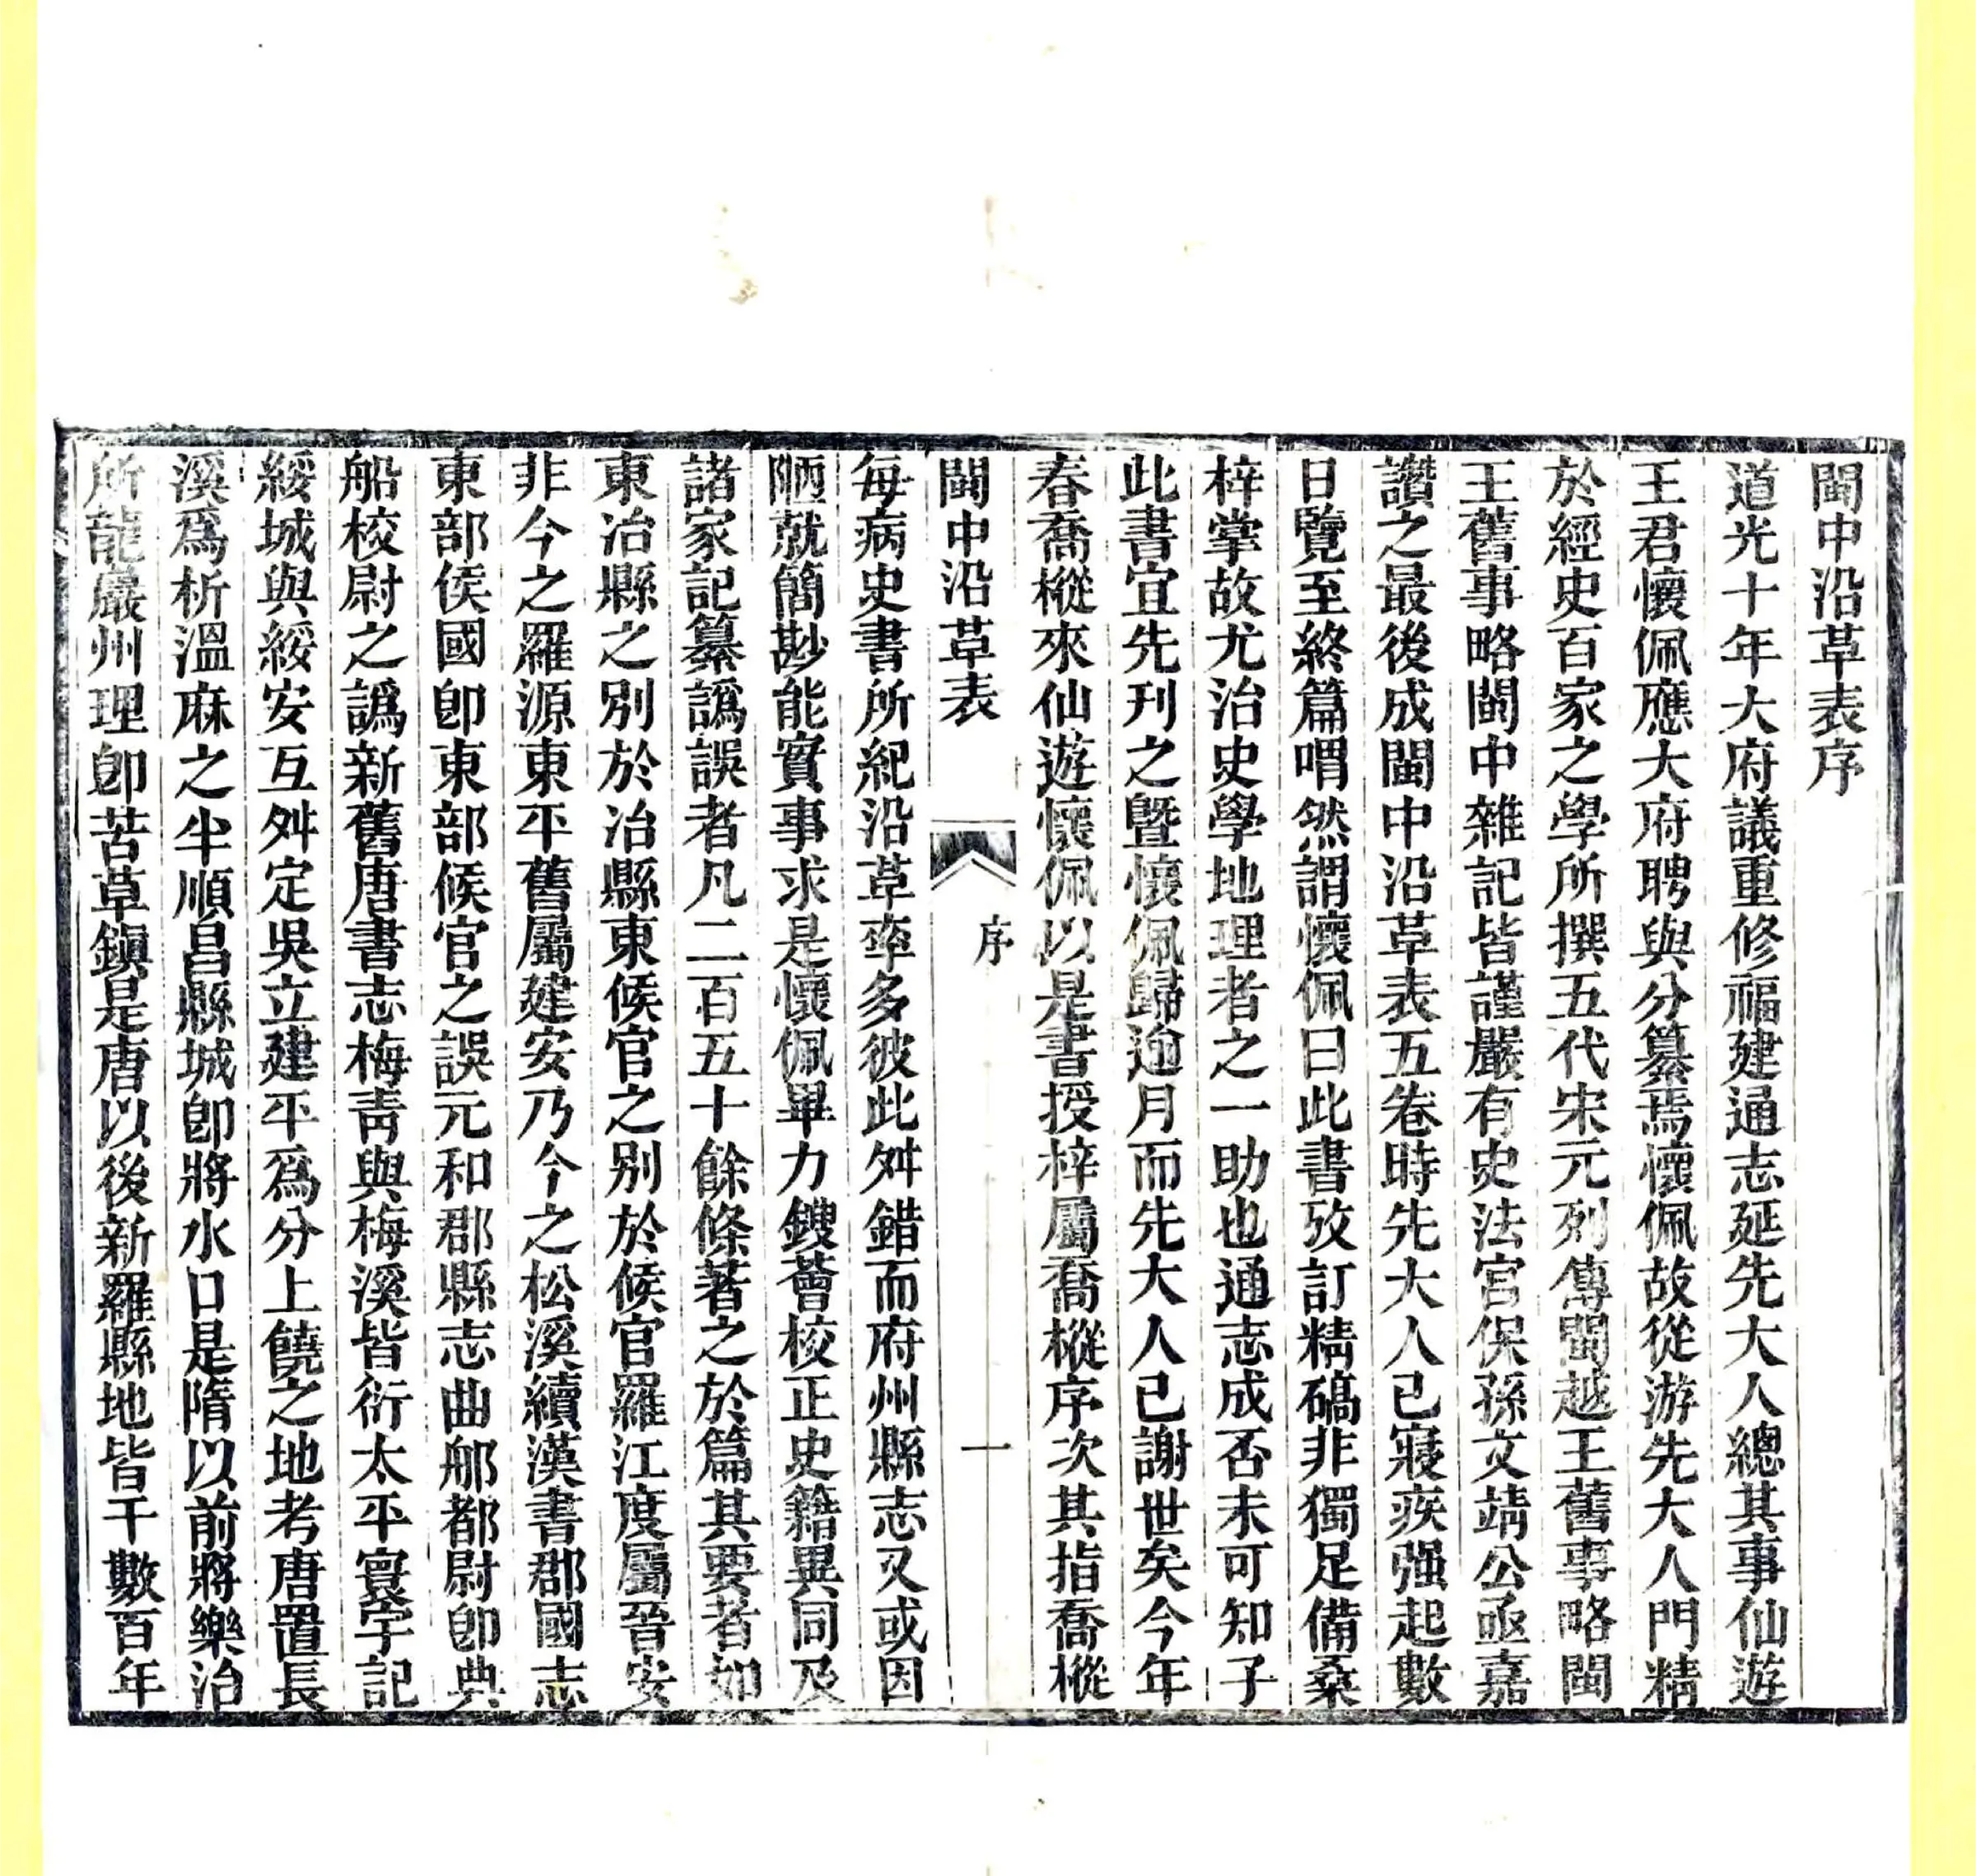 閩中沿革表序
道光十年大府議重修福建通志延先大人總其事仙遊
王君懷佩應大府聘與分纂焉懷佩故從游先大人門精
於經史百家之學所撰五代宋元列傳閩越王舊事略閩
王舊事略閩中雜記皆謹嚴有史法宮保孫文靖公亟嘉
讚之最後成閩中沿革表五卷時先大人已寢疾强起數
日覽至終篇喟然謂懷佩曰此書攷訂精碻非獨足備桑
梓掌故尤治史學地理者之一助也通志成否未可知子
此書宜先刋之暨懷佩歸逾月而先大人已謝世矣今年
春喬樅來仙遊懷佩以是書授梓屬喬樅序次其指喬樅
閩中沿革表
序
一
每病史書所紀沿革率多彼此舛錯而府州縣志又或因
陋就簡尠能實事求是懷佩畢力鎪薈校正史籍異同及
諸家記纂譌誤者凡二百五十餘條著之於篇其要者如
東冶縣之別於冶縣東候官之別於候官羅江度屬晉安
非今之羅源東平舊屬建安乃今之松溪續漢書郡國志
東部侯國卽東部候官之誤元和郡縣志曲郍都尉卽典
船校尉之譌新舊唐書志梅靑與梅溪皆衍太平寰宇記
綏城與綏安互舛定吳立建平爲分上饒之地考唐置長
溪爲析溫麻之半順昌縣城卽將水口是隋以前將樂治
所龍巖州理卽苦草鎭是唐以後新羅縣地皆千數百年